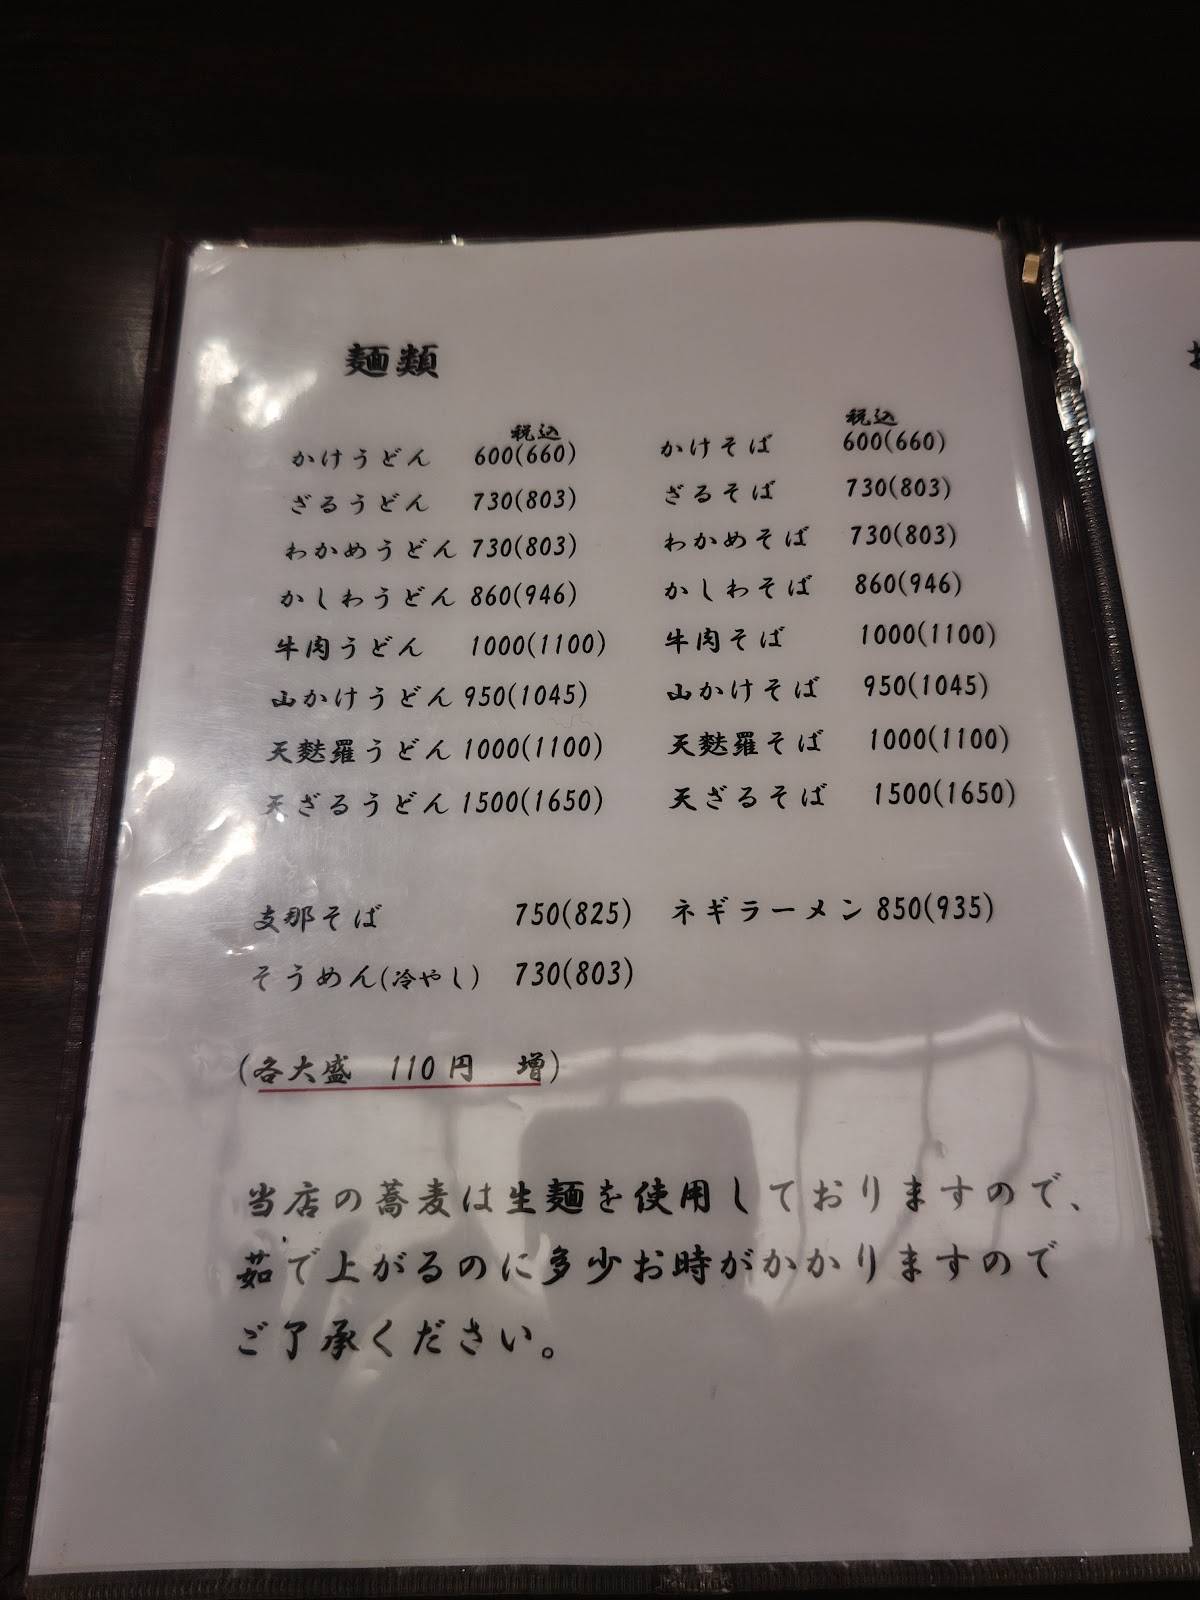 麺類
税込 税込
かけうどん 600(660) かけそば 600(660)
ざるうどん 730(803) ざるそば 730(803)
わかめうどん 730(803) わかめそば 730(803)
かしわうどん 860(946) かしわそば 860(946)
牛肉うどん 1000(1100) 牛肉そば 1000(1100)
山かけうどん 950(1045) 山かけそば 950(1045)
天麩羅うどん 1000(1100) 天麩羅そば 1000(1100)
天ざるうどん 1500(1650) 天ざるそば 1500(1650)
支那そば 750(825) ネギラーメン 850(935)
そうめん(冷やし) 730(803)
(各大盛 110円 増)
当店の蕎麦は生麺を使用しておりますので、
茹で上がるのに多少お時がかかりますので
ご了承ください。